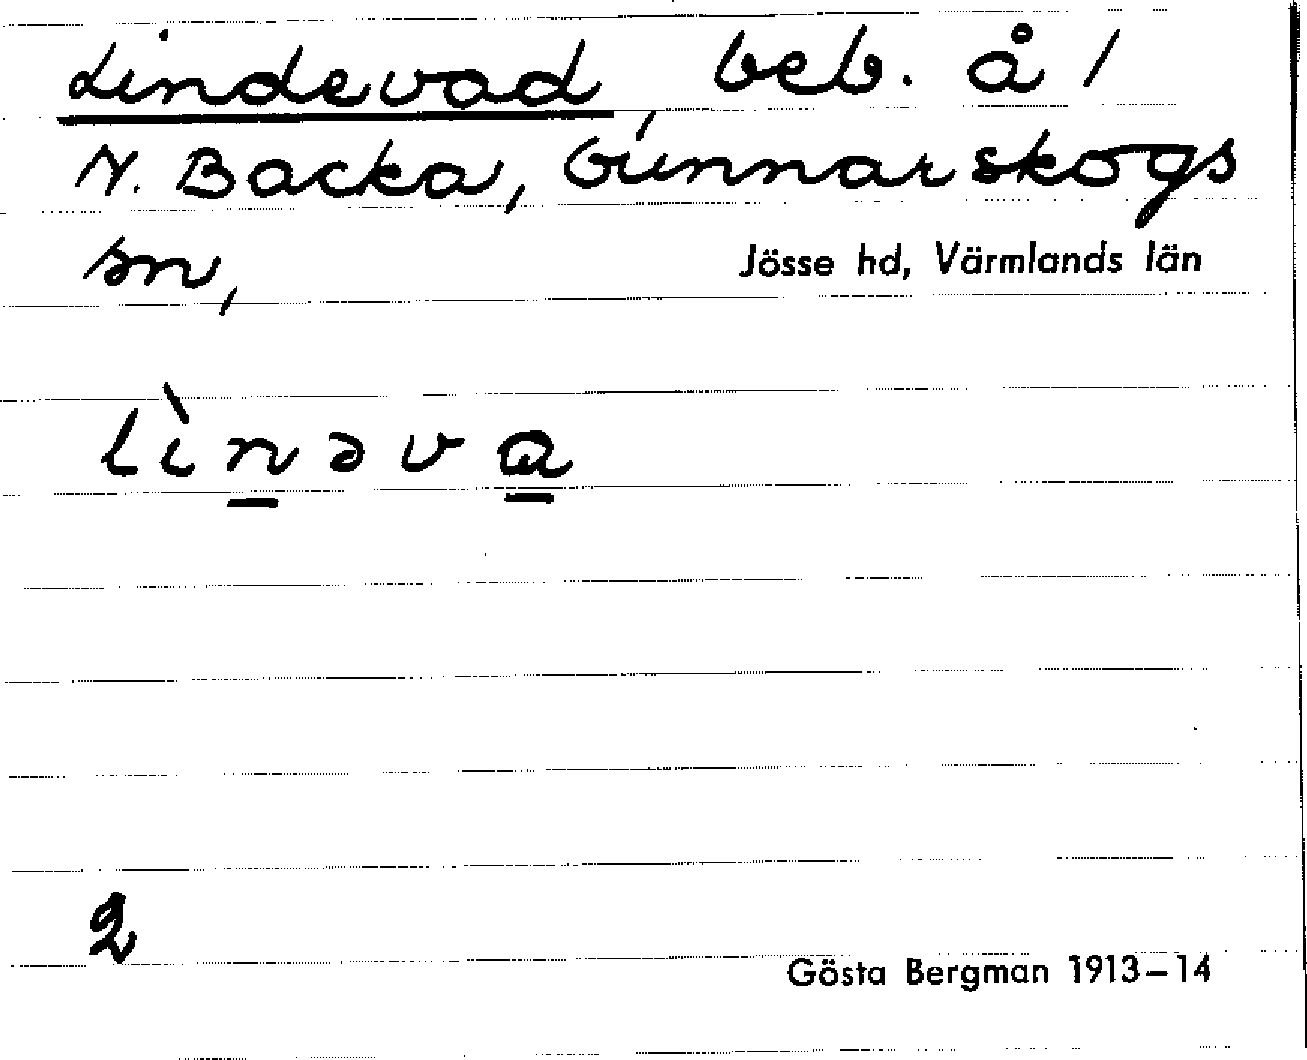 Lindevad beb. å /
N. Backa, Gunnarskogs
sn,
Jösse hd, Värmlands län
lìnəva
2
Gösta Bergman 1913–14